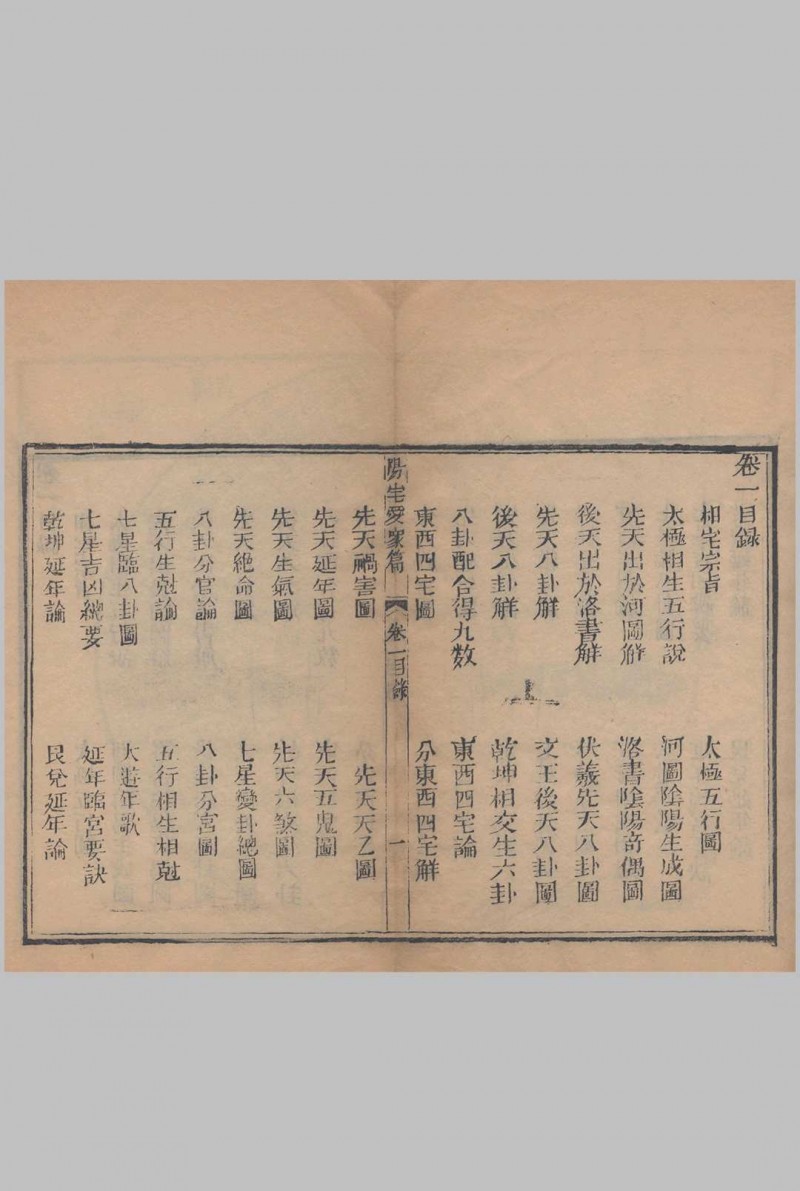 卷一目録
相宅宗旨 太極五行圖
太極相生五行說 河圖陰陽生成圖
先天出於河圖解 洛書陰陽竒偶圖
後天出於洛書解 伏羲先天八卦圖
先天八卦解 文王後天八卦圖
後天八卦解 乾坤相交生六卦
八卦配合得九数 東西四宅論
東西四宅圖 分東西四宅解
陽宅愛衆篇 卷一目錄 一
先天禍害圖 先天天乙圖
先天延年圖 先天五鬼圖
先天生氣圖 先天六煞圖
先天絶命圖 七星變卦總圖
八卦分官論 八卦分宮圖
五行生尅論 五行相生相尅
七星臨八卦圖 大遊年歌
七星吉凶總要 延年臨宮要訣
乾坤延年論 艮兌延年論